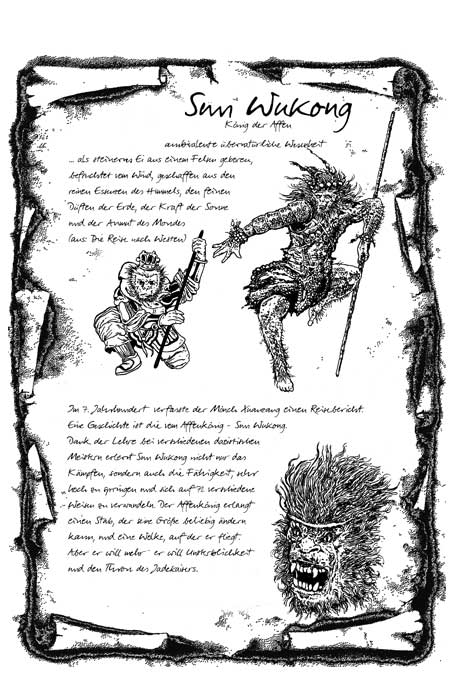 Sun Wukong
König der Affen
ambivalente übernatürliche Wesenheit
... als steinernes Ei aus einem Felsen geboren,
befruchtet vom Wind, geschaffen aus den
reinen Essenzen des Himmels, den feinen
Düften der Erde, der Kraft der Sonne
und der Anmut des Mondes
(aus: Die Reise nach Westen)
Im 7. Jahrhundert verfasste der Mönch Xuanzang einen Reisebericht.
Eine Geschichte ist die vom Affenkönig - Sun Wukong.
Dank der Lehre bei verschiedenen daoistischen
Meistern erlernt Sun Wukong nicht nur das
Kämpfen, sondern auch die Fähigkeit, sehr
hoch zu springen und sich auf 72 verschiedene
Weisen zu verwandeln. Der Affenkönig erlangt
einen Stab, der seine Größe beliebig ändern
kann, und eine Wolke, auf der er fliegt.
Aber er will mehr - er will Unsterblichkeit
und den Thron des Jadekaisers.